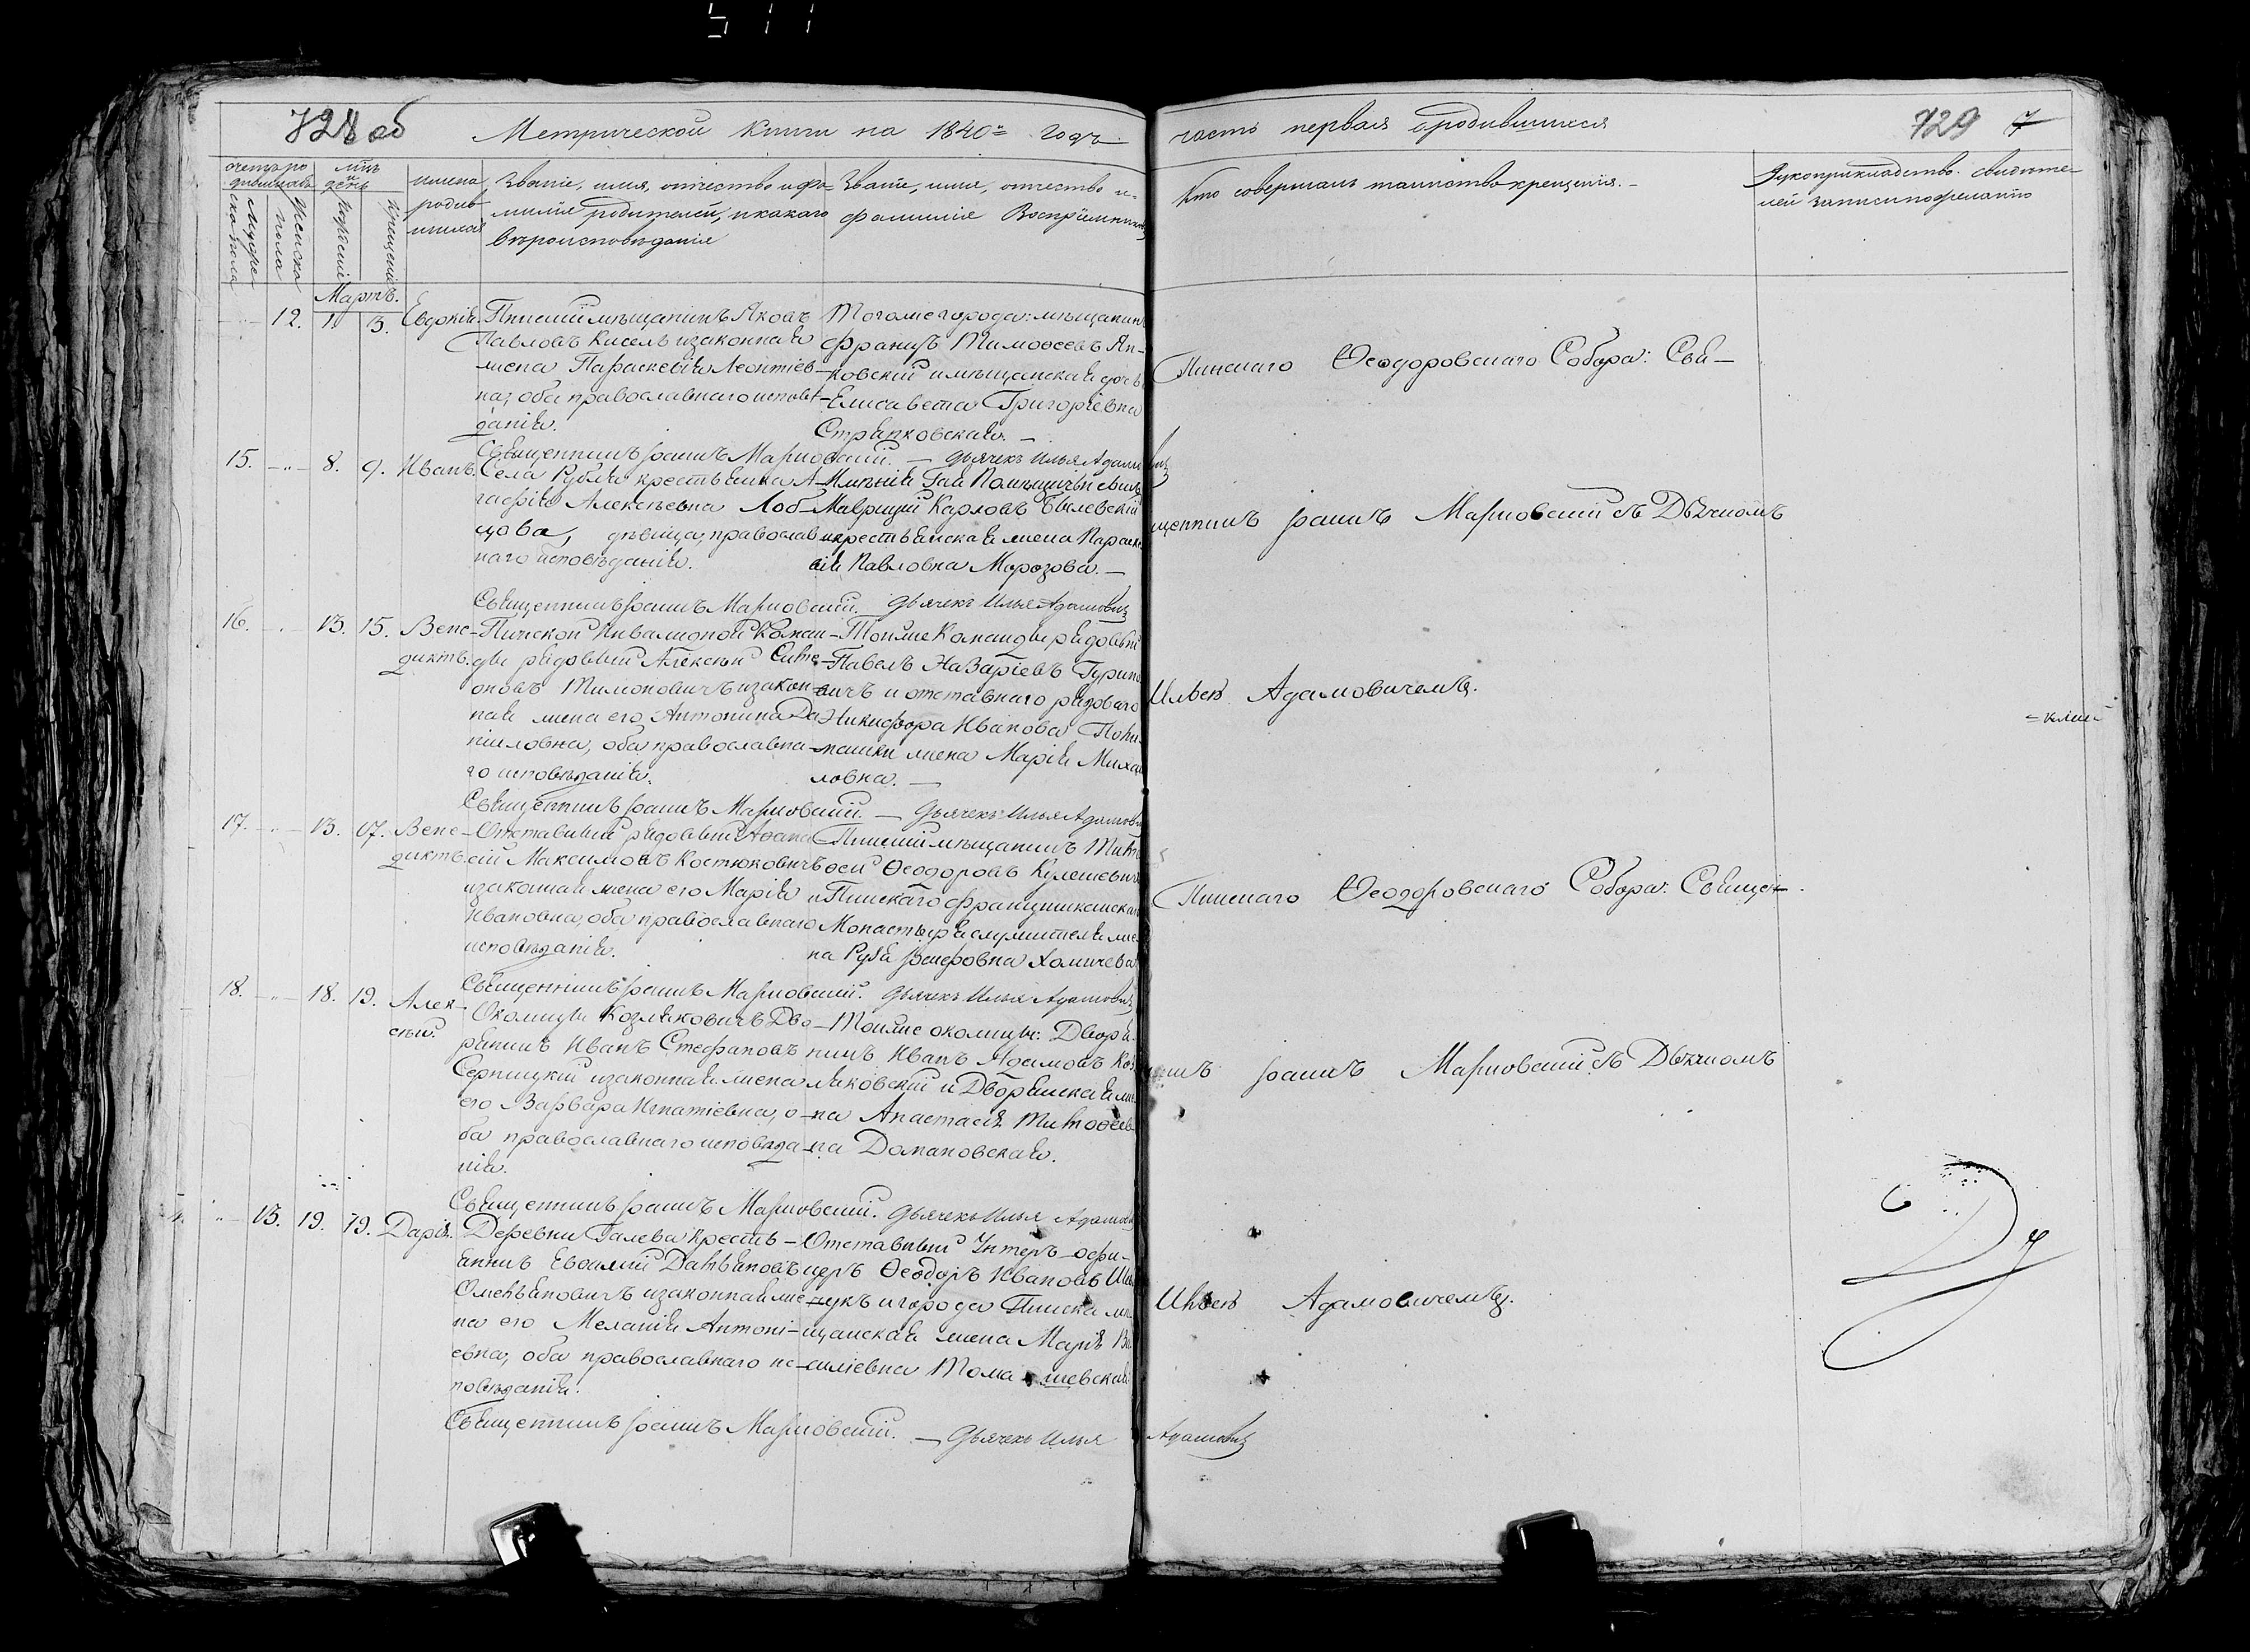 511
728 об
Метрической Книги на 1840й Годъ
часть первая о родившихся
729 7
счетъ родившихся
мужеска пола
женска пола
мѣс. и день
рожденія
крещенія
имена родившихся
Званіе, имя, отчество и фамилія родителей, и какого вѣроисповѣданія
Званіе, имя, отчество и фамилія Воспріемниковъ
Кто совершалъ таинство крещенія.
Рукоприкладство свидѣтелей записи по желанію
Мартъ.
12. 1. 3. Евдокія.
Пинскій мѣщанинъ Яковъ
Павловъ Кисель и законная
жена Параскевія Леонтіев-
на, оба православнаго исповѣ-
данія.
Тогоже города: мѣщанинъ
Францъ Тимоѳеевъ Ян-
ковскій и мѣщанская дочь
Елисавета Григоріевна
Священникъ Іоаннъ Марковскій. — Дьячекъ Илья Адамовичъ
15. 8. 9. Иванъ.
Села Рубля крестьянка А-
гафія Алексѣевна Лоб-
цова, дѣвица, православ-
наго исповѣданія.
Имѣнія Гай
Маврицій Карловъ
и крестьянская жена Параске-
вія Павловна Морозова. —
Священникъ Іоаннъ Марковскій. — Дьячекъ Илья Адамовичъ
16. 13. 15. Вене-
диктъ.
Пинской Инвалидной Коман-
ды рядовый Алексѣй
Тимоновичъ и закон-
ная жена его Антонина Да-
ниловна, оба православна-
го исповѣданія.
Тойже Команды рядовый
Павелъ Назаріевъ Гурино-
вичъ и отставнаго рядоваго
Никифора Иванова
жена Марія Михай-
ловна. —
Священникъ Іоаннъ Марковскій. — Дьячекъ Илья Адамовичъ
17. 13. 17. Вене-
диктъ.
Отставный рядовый Аѳана-
сій Максимовъ Костюковичъ
и законная жена его Марія
Ивановна, оба православнаго
исповѣданія.
Пинскій мѣщанинъ Тимо-
ѳей Ѳеодоровъ Кулешевичъ
и Пинскаго францишканскаго
Монастыря служителя же-
на
Священникъ Іоаннъ Марковскій. Дьячекъ Илья Адамовичъ
18. 18. 19. Алек-
сѣй.
Околицы Козляковичъ Дво-
рянинъ Иванъ Стефановъ
Серницкій и законная жена
его Варвара Игнатіевна, о-
ба православнаго исповѣда-
нія.
Тойже околицы: Дворя-
нинъ Иванъ Адамовъ Коз-
ляковскій и Дворянская же-
на Анастасія Тимоѳеев-
на Домановская.
Священникъ Іоаннъ Марковскій. Дьячекъ Илья Адамовичъ
13. 19. 19. Дарія.
Деревни Галева Кресть-
янинъ Евѳимій
Омельяновичъ и законная же-
на его Меланія Антоні-
евна, оба православнаго ис-
повѣданія.
Отставный Унтеръ-офи-
церъ Ѳеодоръ Ивановъ
и города Пинска мѣ-
щанская жена Марія Ва-
силіевна Томашевская
Священникъ Іоаннъ Марковскій. — Дьячекъ Илья Адамовичъ
Пинскаго Ѳеодоровскаго Собора: Свя-
щенникъ Іоаннъ Марковскій съ Дьячкомъ
Ильею Адамовичемъ.
Пинскаго Ѳеодоровскаго Собора: Священ-
никъ Іоаннъ Марковскій съ Дьячкомъ
Ильею Адамовичемъ.